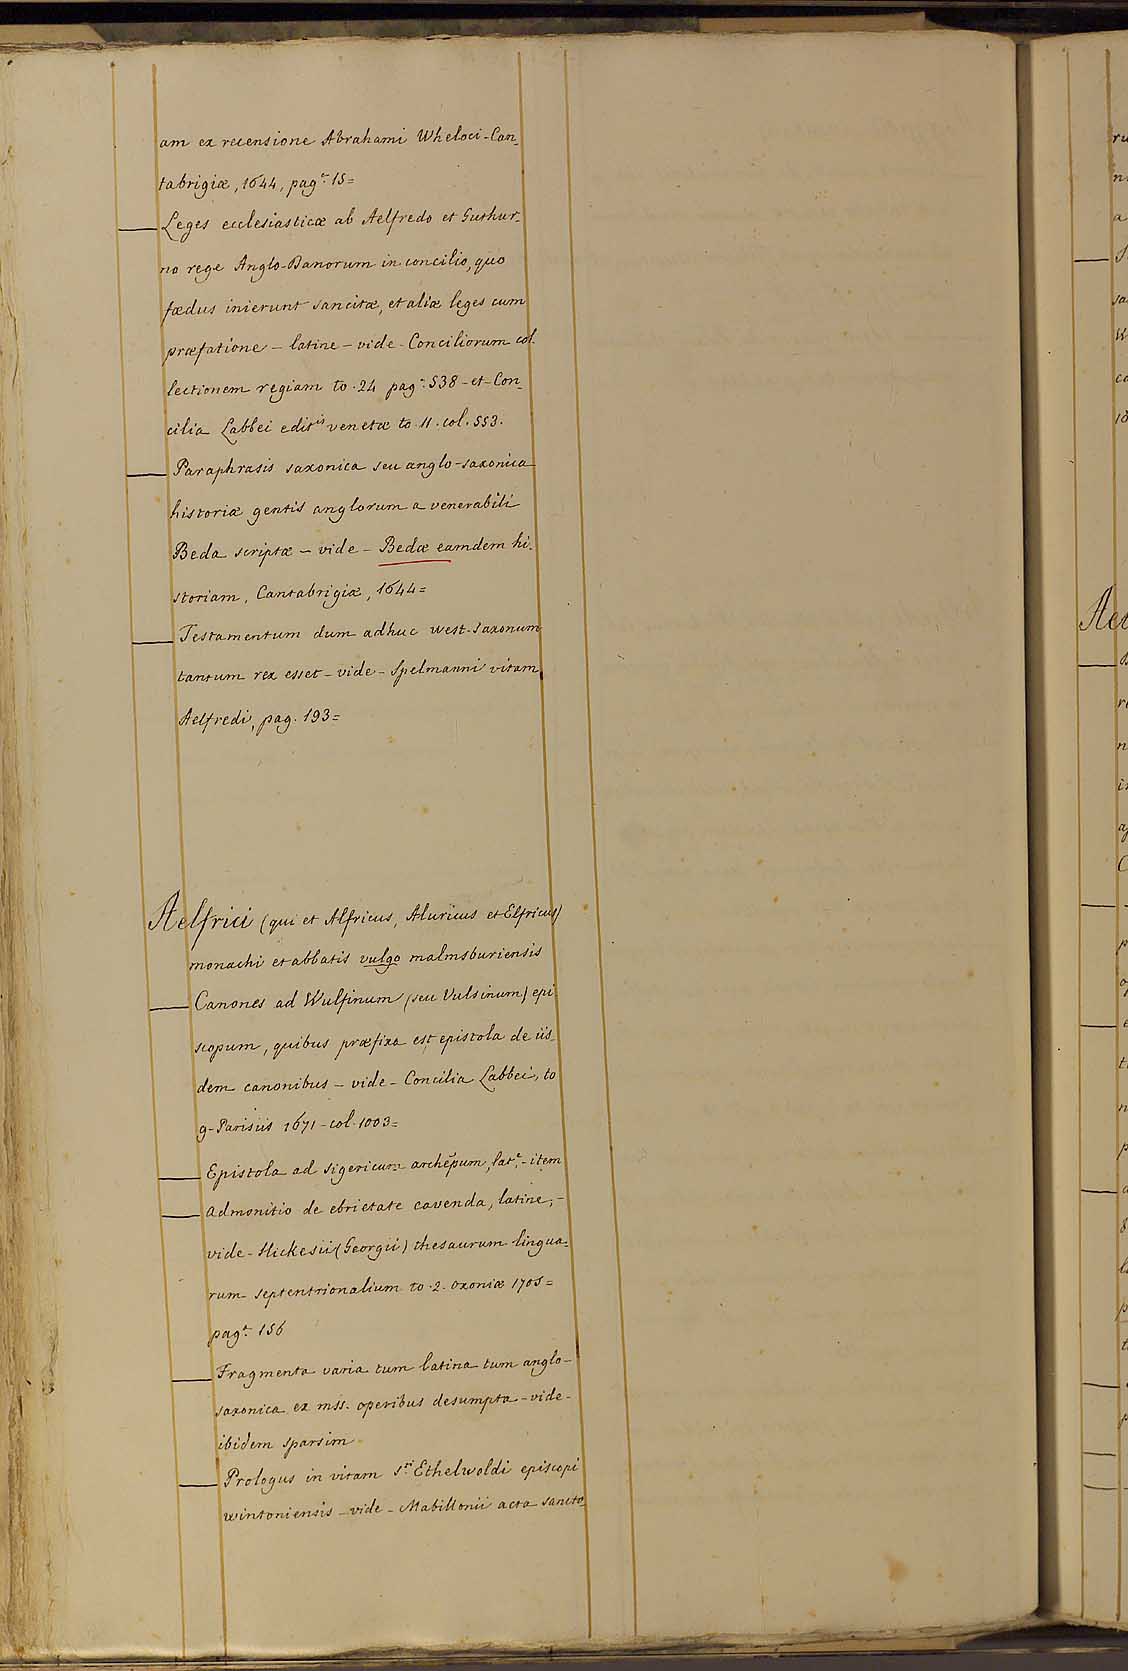 am ex recensione Abrahami Wheloci - Can_
tabrigiæ, 1644, pag.ᵃ 15 =
Leges ecclesiasticæ ab Aelfredo et Guthur_
no rege Anglo-Danorum in concilio, quo
fœdus inierunt sancitæ, et aliæ leges cum
præfatione - latine - vide - Conciliorum col_
lectionem regiam to. 24 pag.ᵃ 538 - et - Con_
cilia Labbei editⁱˢ venetæ to. 11. col. 553.
Paraphrasis saxonica seu anglo-saxonica
historiæ gentis anglorum a venerabili
Beda scriptæ - vide - Bedæ eamdem hi_
storiam, Cantabrigiæ, 1644 =
Testamentum dum adhuc west-saxonum
tantum rex esset - vide - Spelmanni vitam
Aelfredi, pag. 193 =
Aelfrici (qui et Alfricus, Aluricus et Elfricus)
monachi et abbatis vulgo malmsburiensis
Canones ad Wulfinum (seu Vulsinum) epi
scopum, quibus præfixa est epistola de iis_
dem canonibus - vide - Concilia Labbei, to
9 - Parisiis 1671 - col. 1003 =
Epistola ad Sigericum archēpum, lat.ᵉ - item
admonitio de ebrietate cavenda, latine, -
vide - Hickesii (Georgii) thesaurum lingua=
rum septentrionalium to. 2. oxoniæ 1705 =
pag.ᵃ 156
Fragmenta varia tum latina tum anglo-
saxonica ex mss. operibus desumpta - vide -
ibidem sparsim
Prologus in vitam S.ᵗⁱ Ethelwoldi episcopi
wintoniensis - vide - Mabillonii acta sancto